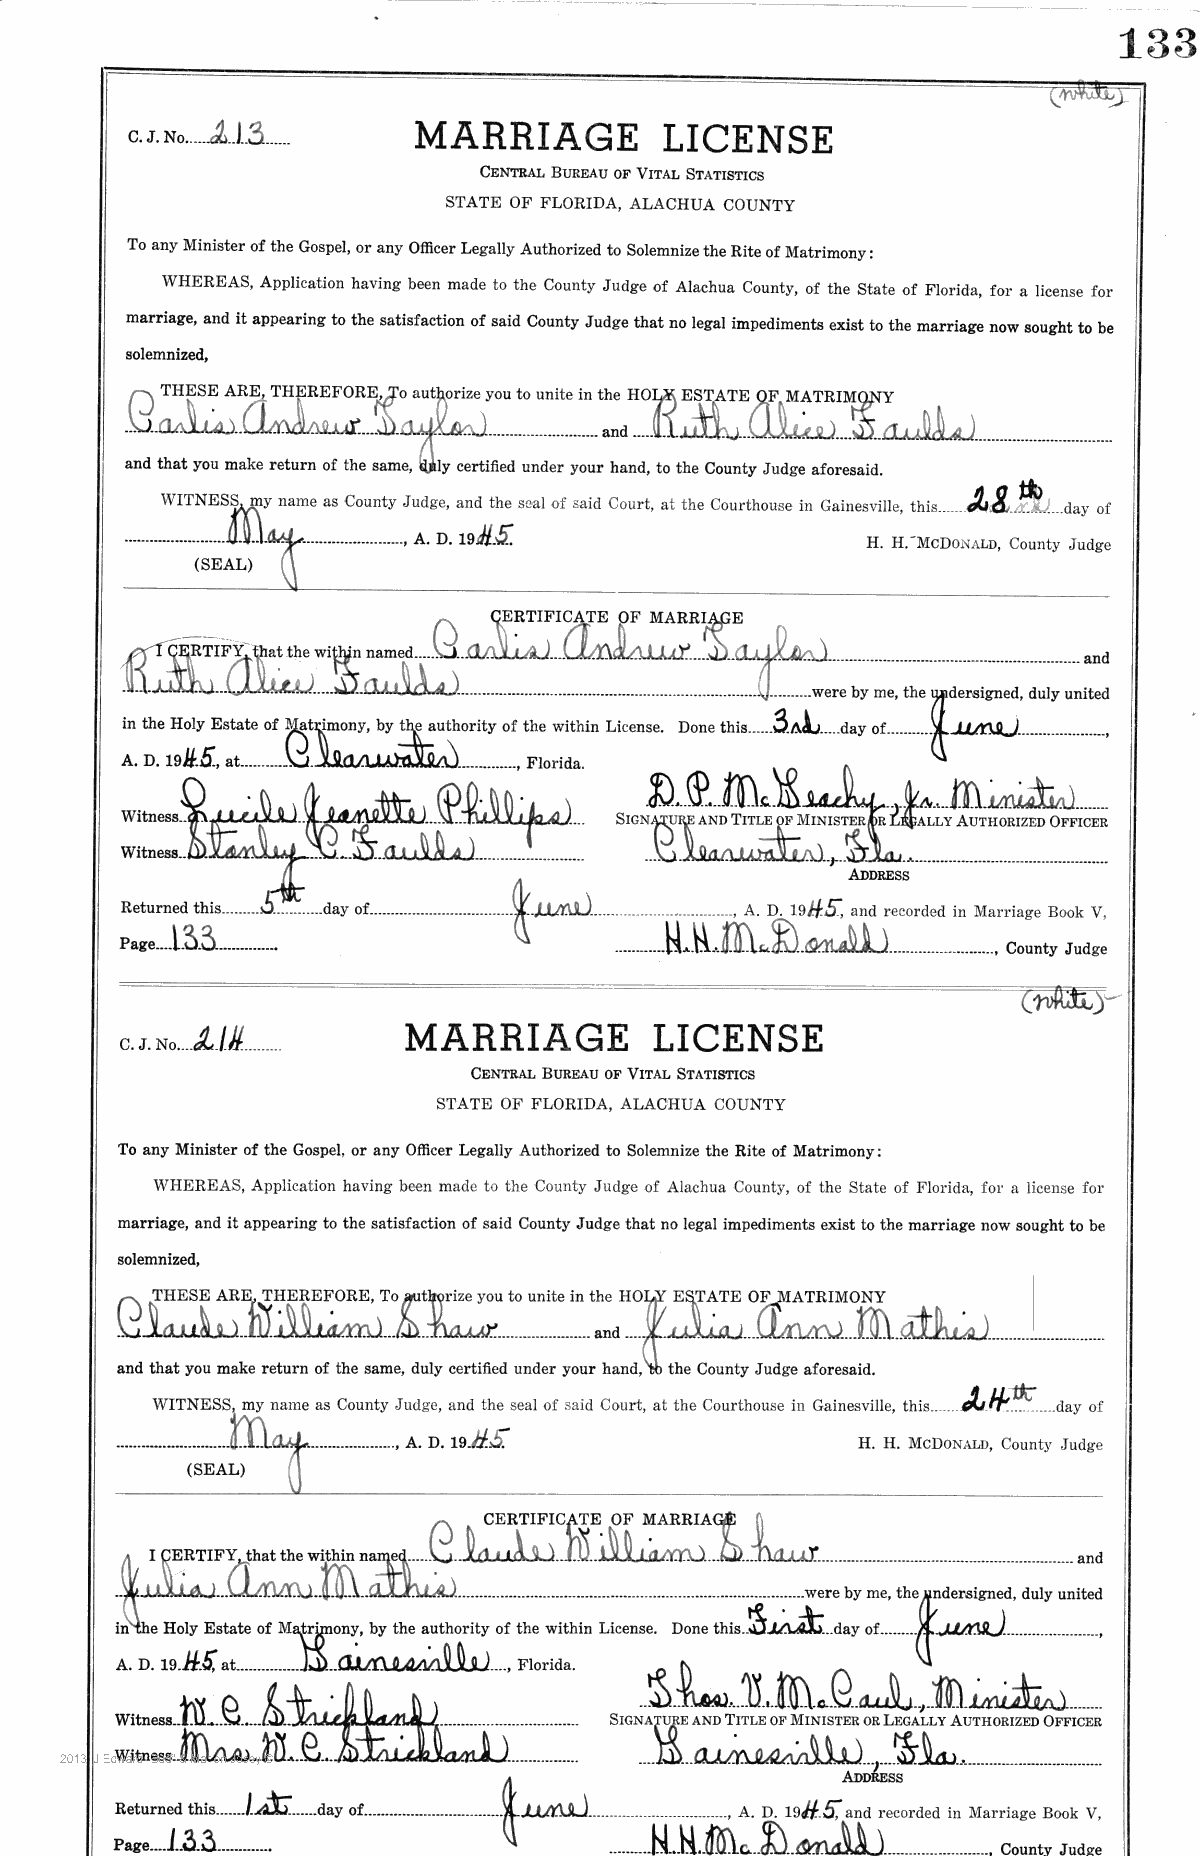 133
(white)
C. J. No. 213
MARRIAGE LICENSE
CENTRAL BUREAU OF VITAL STATISTICS
STATE OF FLORIDA, ALACHUA COUNTY
To any Minister of the Gospel, or any Officer Legally Authorized to Solemnize the Rite of Matrimony:
WHEREAS, Application having been made to the County Judge of Alachua County, of the State of Florida, for a license for
marriage, and it appearing to the satisfaction of said County Judge that no legal impediments exist to the marriage now sought to be
solemnized,
THESE ARE, THEREFORE, To authorize you to unite in the HOLY ESTATE OF MATRIMONY
Carlis Andrew Taylor and Ruth Alice Faulds
and that you make return of the same, duly certified under your hand, to the County Judge aforesaid.
WITNESS, my name as County Judge, and the seal of said Court, at the Courthouse in Gainesville, this 28th day of
May, A. D. 1945. H. H. MCDONALD, County Judge
(SEAL)
CERTIFICATE OF MARRIAGE
I CERTIFY, that the within named Carlis Andrew Taylor and
Ruth Alice Faulds were by me, the undersigned, duly united
in the Holy Estate of Matrimony, by the authority of the within License. Done this 3rd day of June,
A. D. 1945, at Clearwater, Florida.
D. P. McGeachy, Jr. Minister
Witness Lucile Jeanette Phillips SIGNATURE AND TITLE OF MINISTER OR LEGALLY AUTHORIZED OFFICER
Witness Stanley C. Faulds Clearwater, Fla.
ADDRESS
Returned this 5th day of June, A. D. 1945, and recorded in Marriage Book V,
Page 133 H. H. McDonald, County Judge
(white)
C. J. No. 214
MARRIAGE LICENSE
CENTRAL BUREAU OF VITAL STATISTICS
STATE OF FLORIDA, ALACHUA COUNTY
To any Minister of the Gospel, or any Officer Legally Authorized to Solemnize the Rite of Matrimony:
WHEREAS, Application having been made to the County Judge of Alachua County, of the State of Florida, for a license for
marriage, and it appearing to the satisfaction of said County Judge that no legal impediments exist to the marriage now sought to be
solemnized,
THESE ARE, THEREFORE, To authorize you to unite in the HOLY ESTATE OF MATRIMONY
Claude William Shaw and Julia Ann Mathis
and that you make return of the same, duly certified under your hand, to the County Judge aforesaid.
WITNESS, my name as County Judge, and the seal of said Court, at the Courthouse in Gainesville, this 24th day of
May, A. D. 1945. H. H. MCDONALD, County Judge
(SEAL)
CERTIFICATE OF MARRIAGE
I CERTIFY, that the within named Claude William Shaw and
Julia Ann Mathis were by me, the undersigned, duly united
in the Holy Estate of Matrimony, by the authority of the within License. Done this First day of June,
A. D. 1945, at Gainesville, Florida.
Thos. V. McCaul, Minister
Witness W. C. Strickland SIGNATURE AND TITLE OF MINISTER OR LEGALLY AUTHORIZED OFFICER
2013 J
Witness Mrs. W. C. Strickland Gainesville, Fla.
ADDRESS
Returned this 1st day of June, A. D. 1945, and recorded in Marriage Book V,
Page 133 H. H. McDonald, County Judge